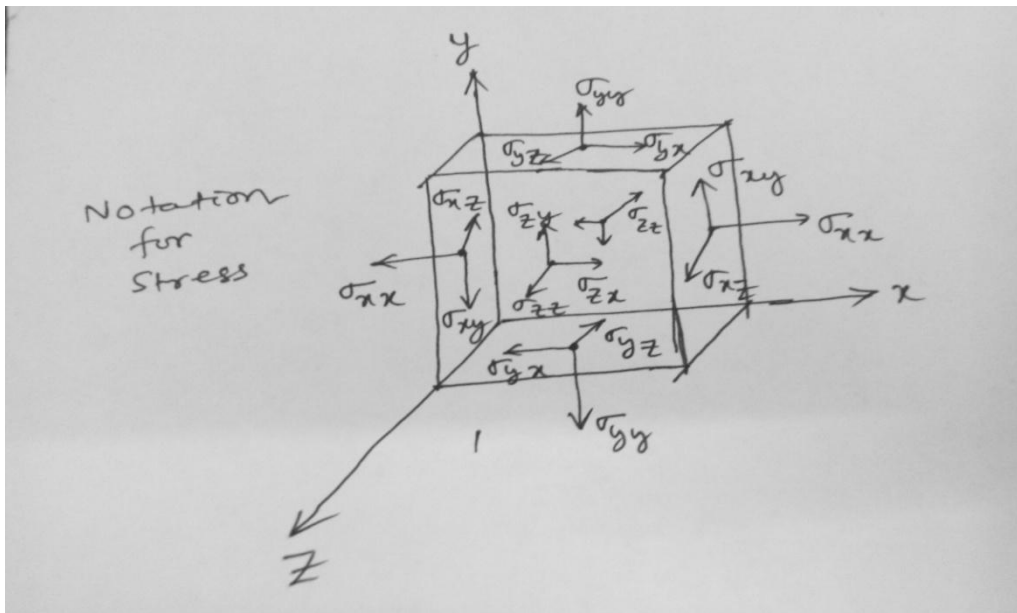 y
σyy
σyz σyx
σxy
Notation
for
Stress
σxz
σzy
σzz
σxx
σxx
σxz
σzx
σzz
x
σxy
σyz
σyx
σyy
z